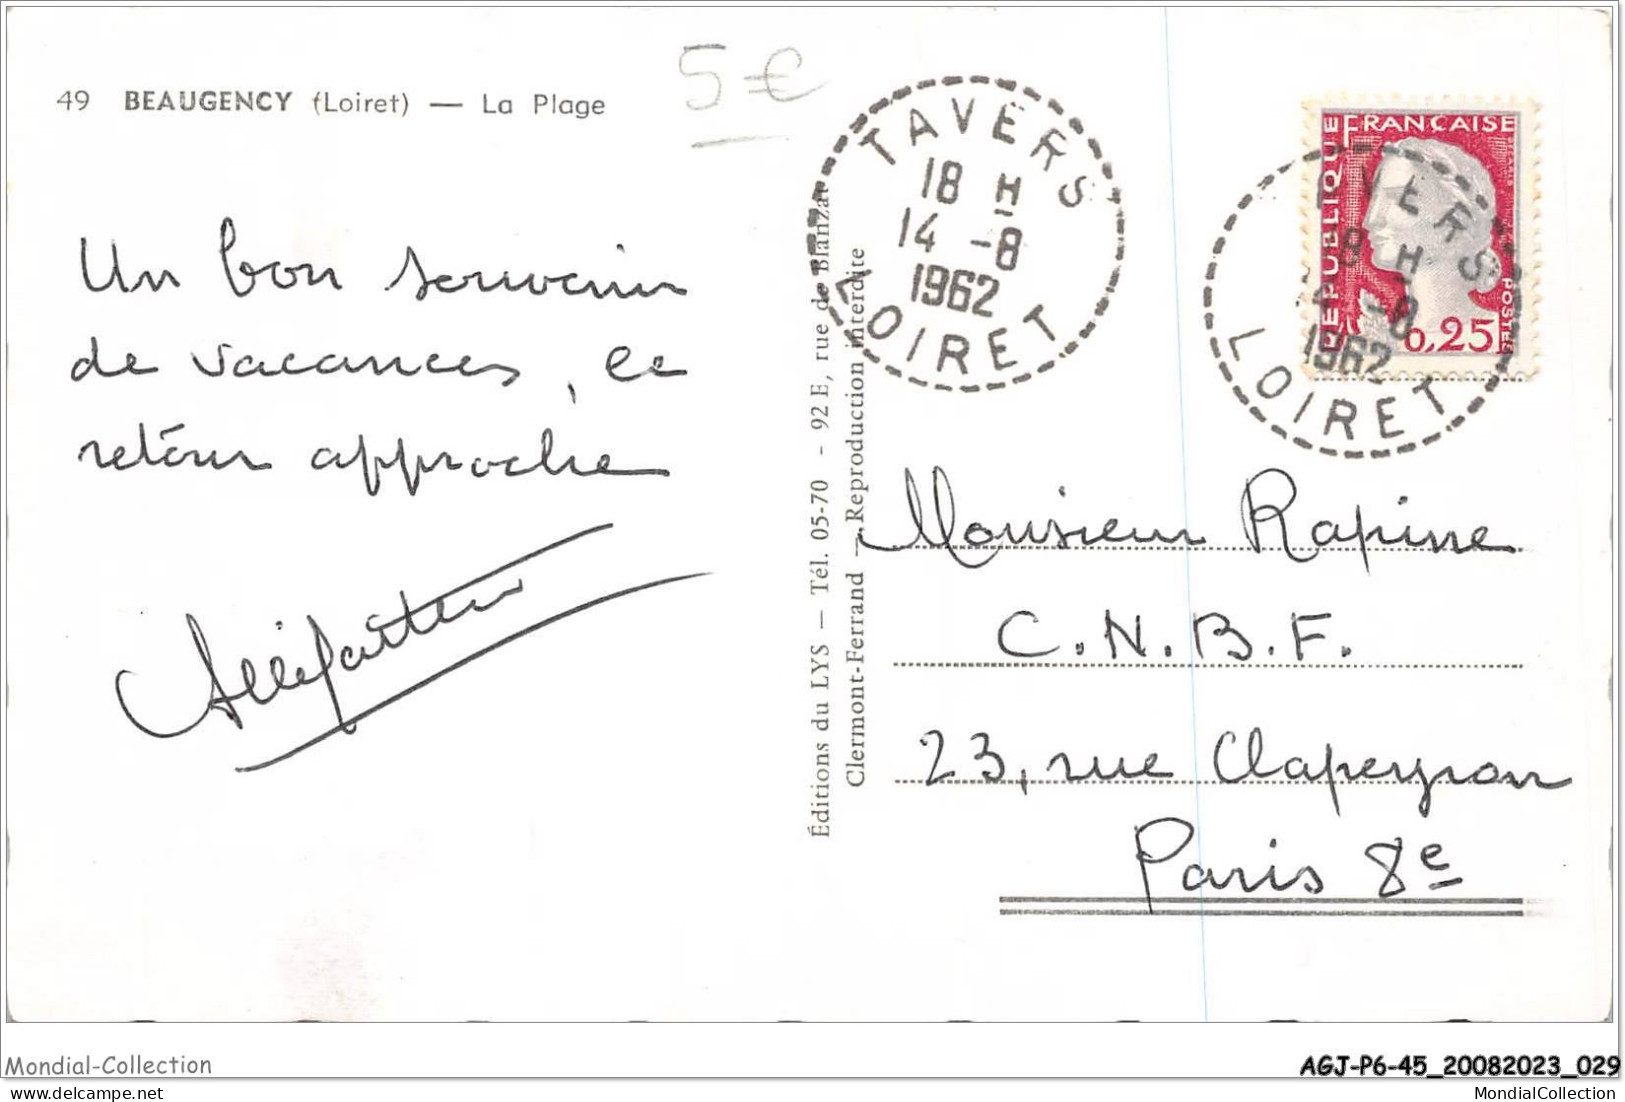 49 BEAUGENCY (Loiret) — La Plage
5 €
Un bon souvenir
de vacances, le
retour approche
Éditions du LYS — Tél. 05-70 - 92 E, rue de Blanzat
Clermont-Ferrand — Reproduction interdite
TAVERS
18 H
14 -8
1962
LOIRET
RÉPUBLIQUE FRANÇAISE
POSTES
0,25
VERS
18 H
14 -8
1962
LOIRET
Monsieur Rapine
C.N.B.F.
23, rue Clapeyron
Paris 8e
Mondial-Collection
AGJ-P6-45_20082023_029
MondialCollection